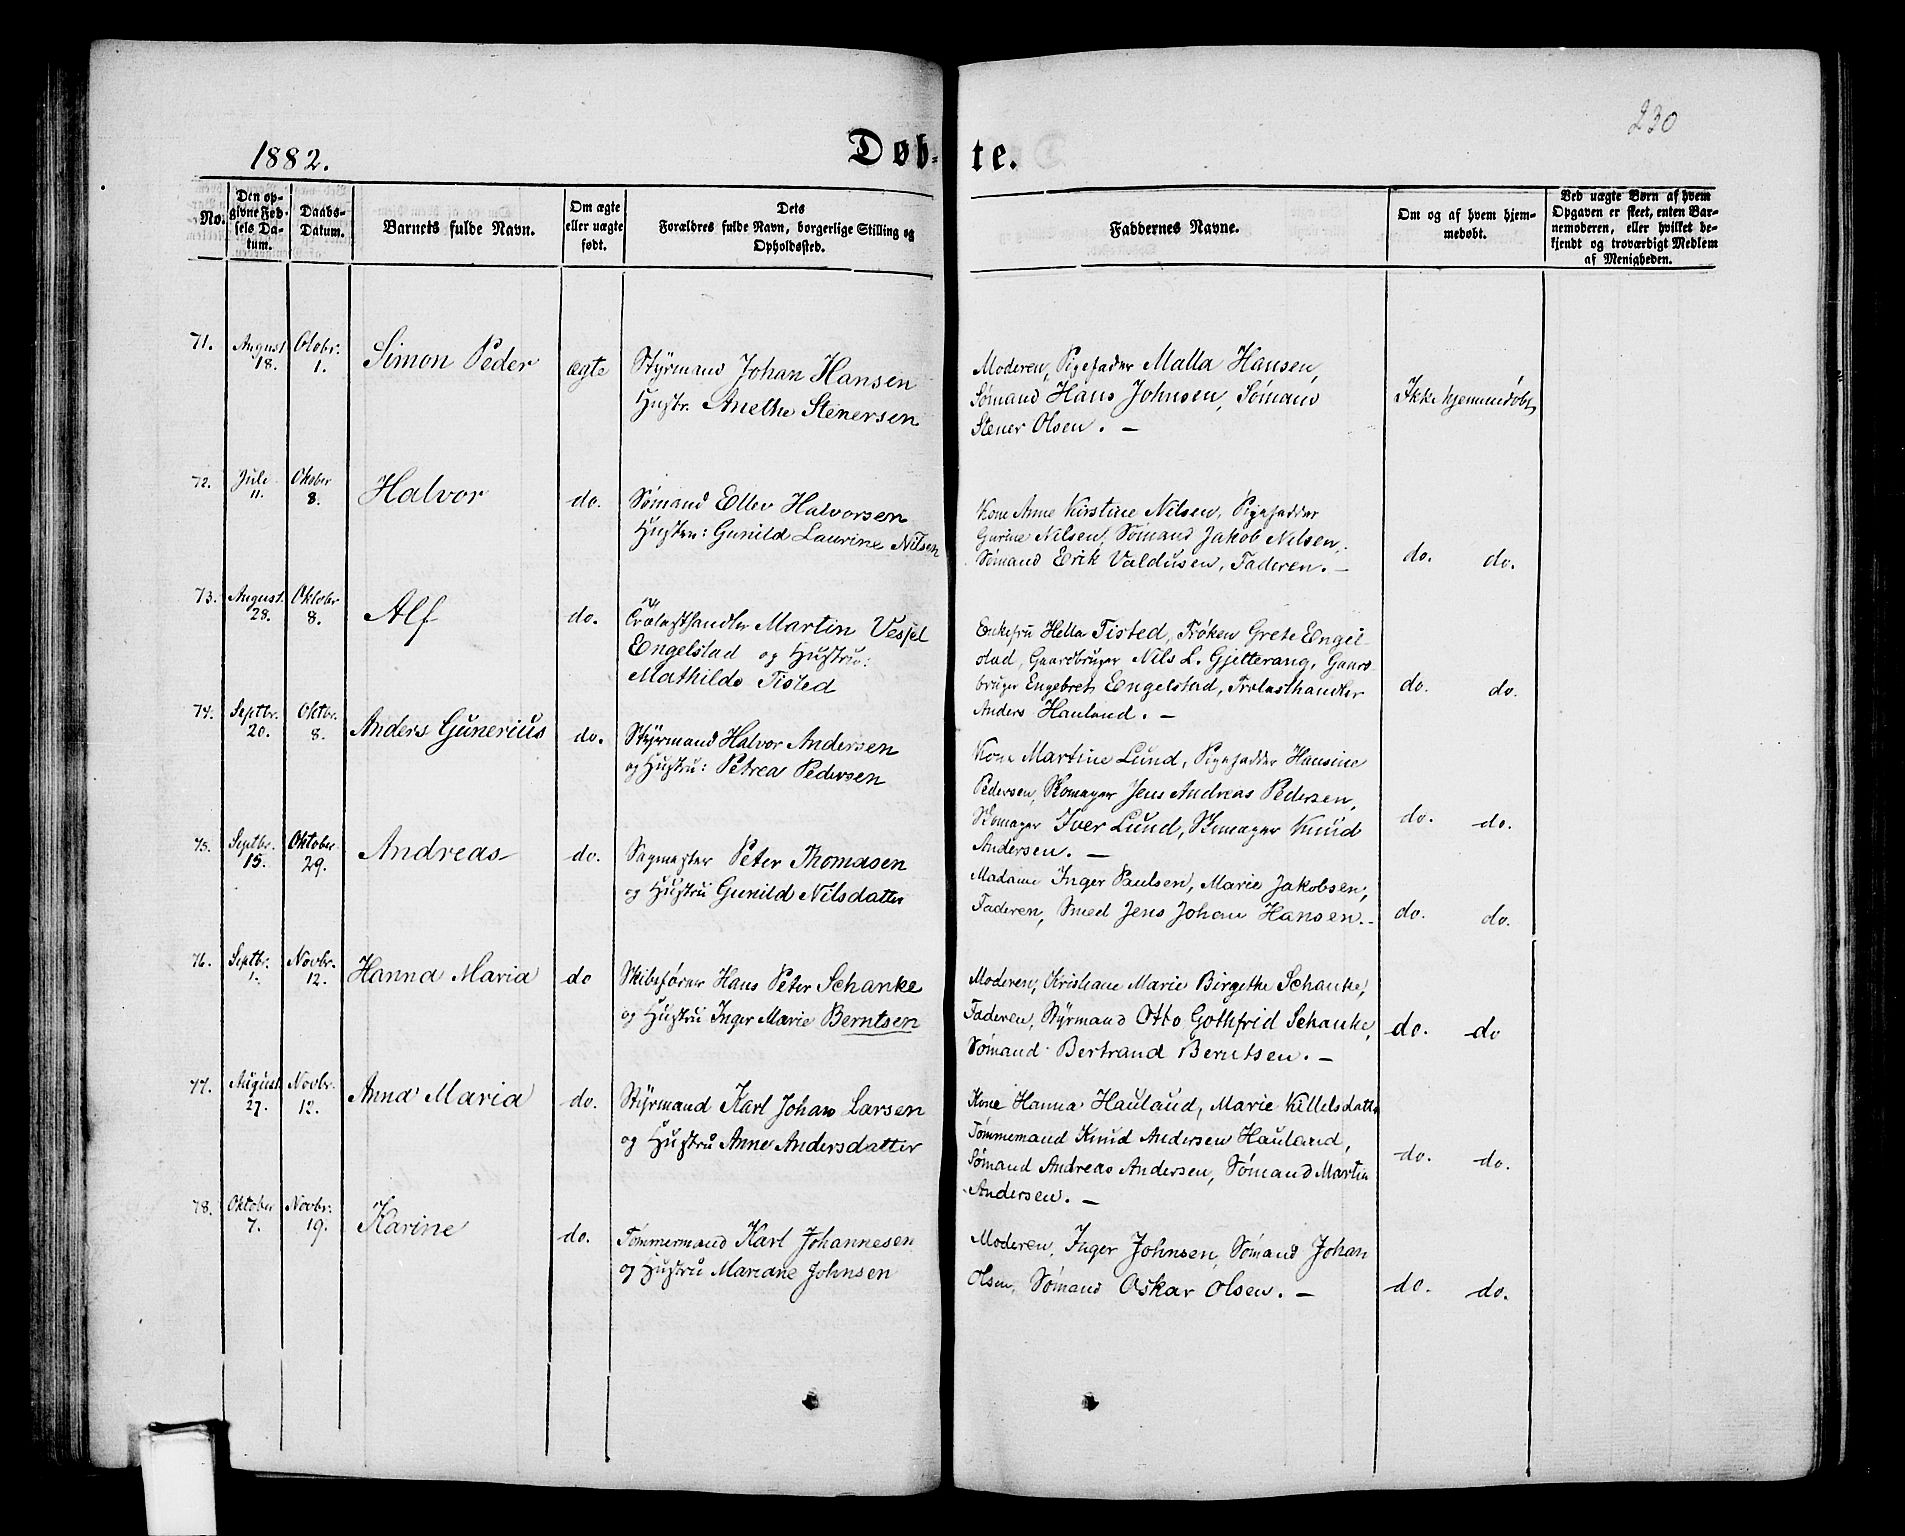 230
1882.
Døb-te.
No.
Den op-
givne Fød-
sels Da-
tum.
Daabs-
Datum.
Barnets fulde Navn.
Om ægte
eller uægte
født.
Dets
Forældres fulde Navn, borgerlige Stilling og
Opholdssted.
Faddernes Navne.
Om og af hvem hjem-
medøbt.
Ved uægte Børn af hvem
Opgaven er skeet, enten Bar-
nemoderen, eller hvilket be-
kjendt og troværdigt Medlem
af Menigheden.
71.
August
18.
Otobr.
1.
Simon Peder
ægte
Styrmand Johan Hansen
Hustr. Anethe Stenersen
Moderen, Pigefader Malla Hansen,
Sømand Hans Johnsen, Sømand
Stener Olsen. —
Ikke hjemmedøbt
72.
Juli
11.
Oktober
8.
Halvor
do.
Sømand Ellev Halvorsen
Hustru: Gunild Laurine Nilsen
Kone Anne Kirstine Nilsen, Pigefadder
Gurine Nilsen, Sømand Jakob Nilsen,
Sømand Erik Valdusen, Faderen. —
do. do.
73.
August.
28.
Oktobr
8.
Alf
do.
Trælasthandler Martin Vessel
Engelstad og Hustru:
Mathilde Tisted
Enkefru Hella Tisted, Frøken Grete Engel-
stad, Gaardbruger Nils L. Gjitterang, Gaard-
bruger Engebret Engelstad, Trælasthandler
Anders Hauland. —
do. do.
74.
Septbr.
20.
Oktbr.
8.
Anders Gunerius
do.
Styrmand Halvor Andersen
og Hustru: Petrea Pedersen
Kone Martine Lund, Pigefadder Hansine
Pedersen, Skomager Jens Andreas Pedersen,
Skomager Iver Lund, Skomager Knud
Andersen. —
do. do.
75.
Septbr.
15.
Oktober
29.
Andreas
do.
Sagmester Peter Thomasen
og Hustru Gunild Nilsdatter
Madame Inger Paulsen, Marie Jakobsen,
Faderen, Smed Jens Johan Hansen. -
do. do.
76.
Septbr.
1.
Novbr.
12.
Hanna Maria
do
Skibsfører Hans Peter Schanke
og Hustru Inger Marie Berntsen
Moderen, Kristiane Marie Birgethe Schanke,
Faderen, Styrmand Otto Gothfrid Schanke,
Sømand Bertrand Berntsen. —
do. do
77.
August
27.
Novbr.
12.
Anna Maria
do.
Styrmand Karl Johan Larsen
og Hustru Anne Andersdatter
Kone Hanna Hauland, Marie Killelsdatter
Tømmemand Knud Andersen Hauland,
Sømand Andreas Andersen, Sømand Martin
Andersen. —
do. do.
78.
Oktober
7.
Novbr.
19.
Karine
do.
Tømmermand Karl Johannesen
og Hustru Mariane Johnsen
Moderen, Inger Johnsen, Sømand Johan
Olsen, Sømand Oskar Olsen. —
do. do.